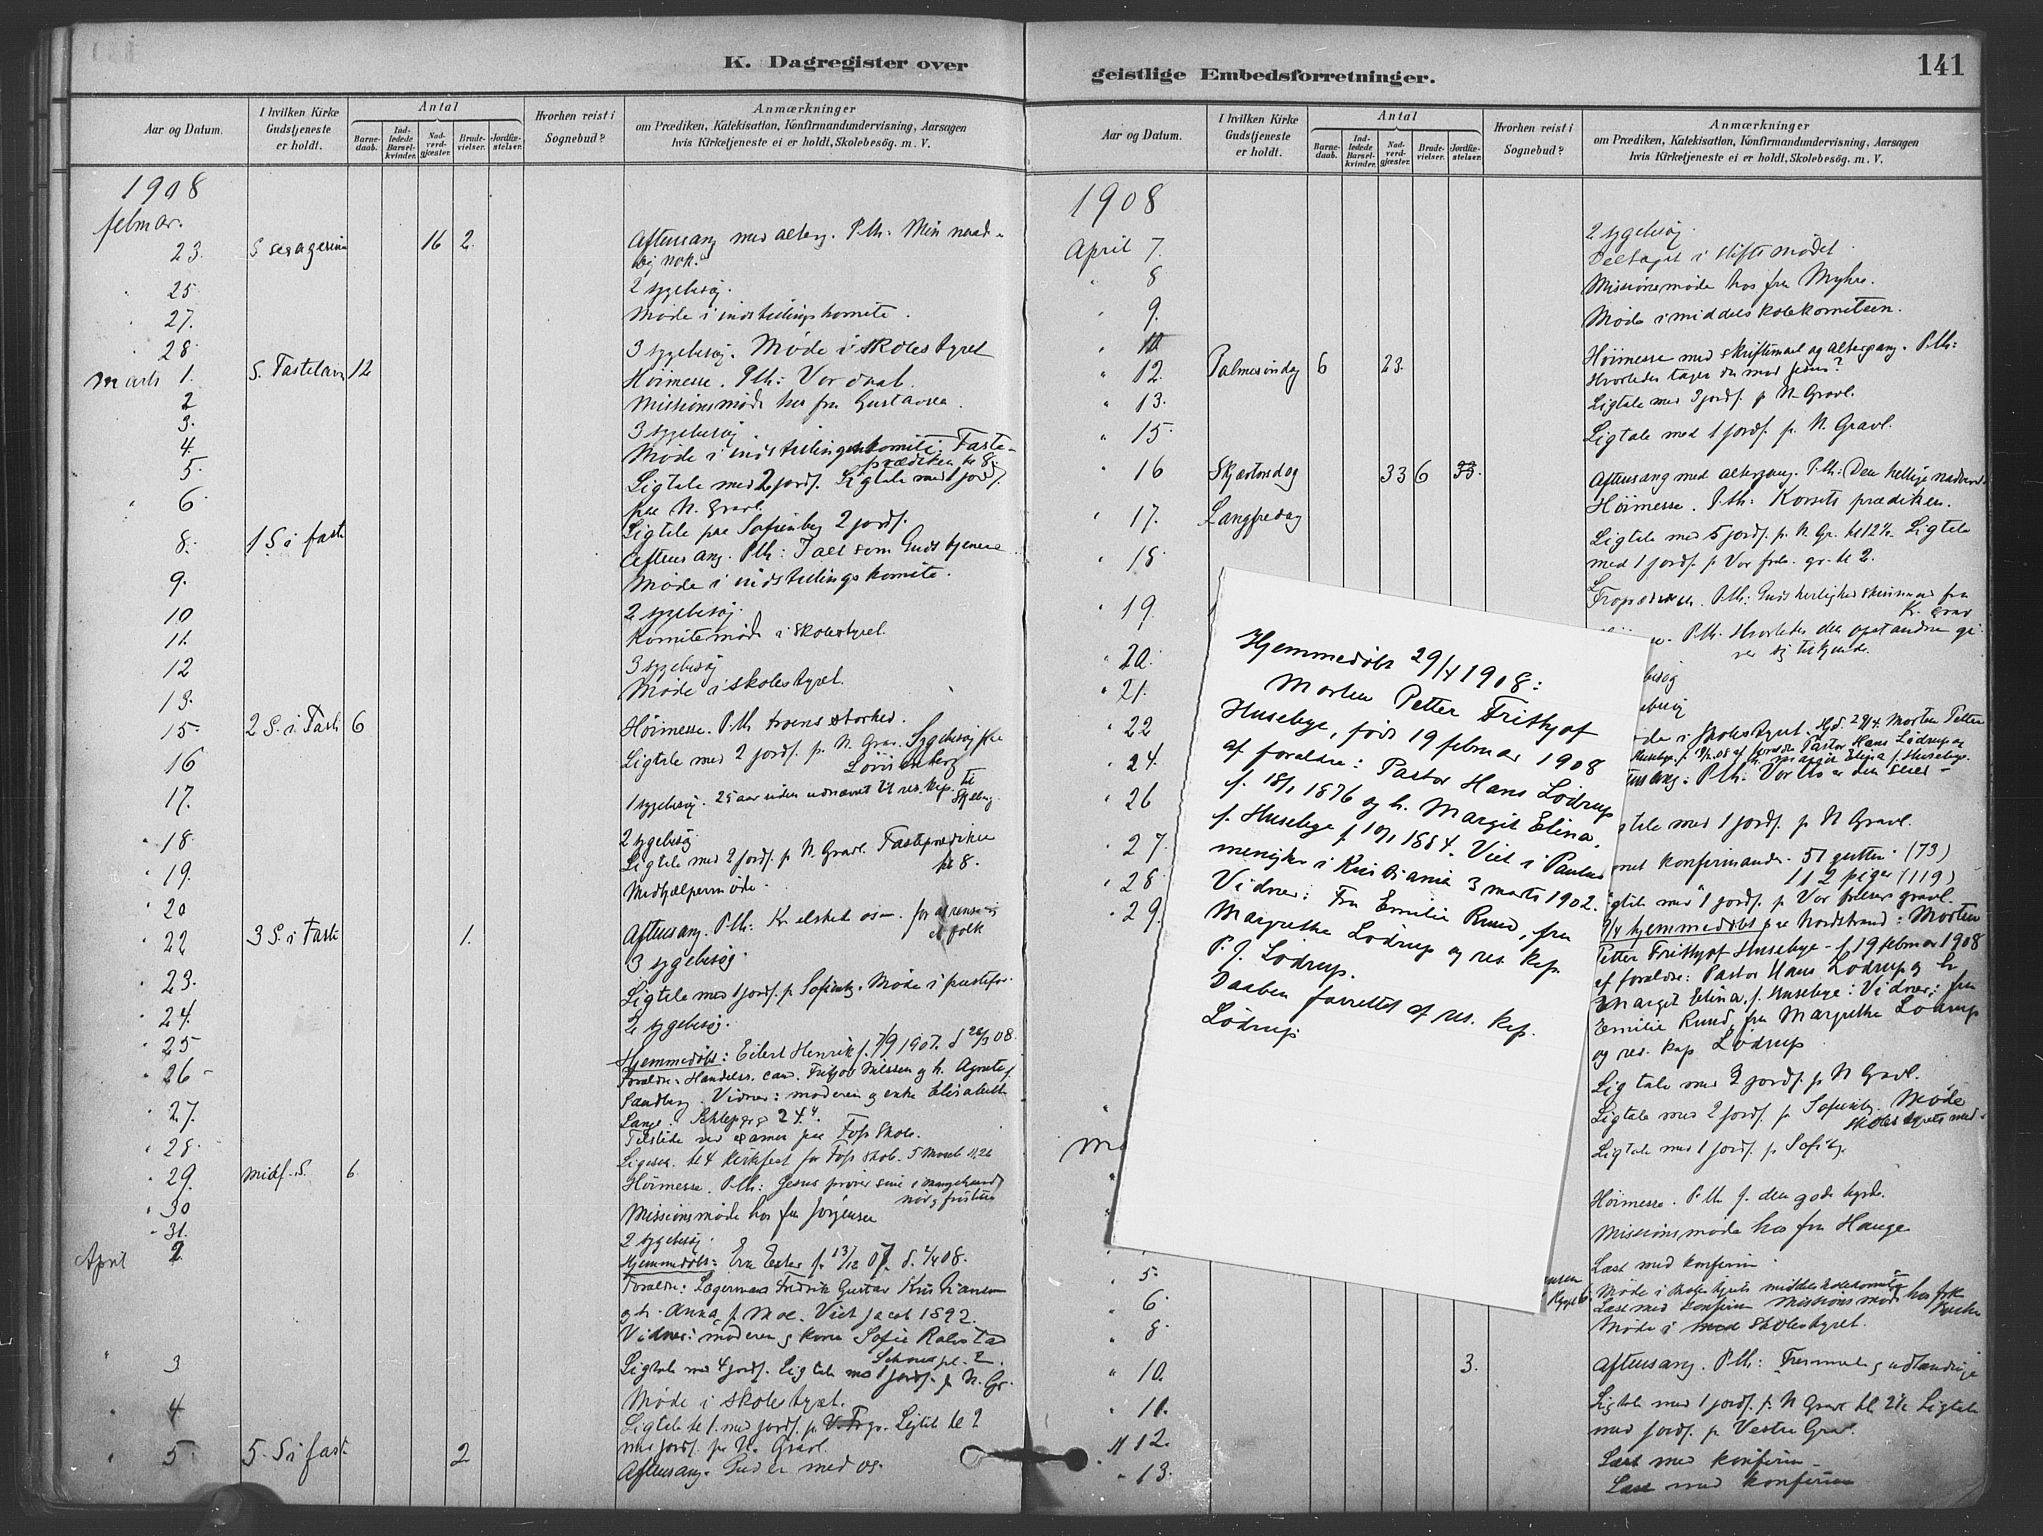 K. Dagregister over
Aar og Datum.
I hvilken Kirke
Gudstjeneste
er holdt.
Antal
Barne-
daab.
Ind-
ledede
Barsel-
kvinder.
Nad-
verd-
gjæster.
Brude-
vielser.
Jordfæ-
stelser.
Hvorhen reist i
Sognebud?
Anmærkninger
om Prædiken, Katekisation, Konfirmandundervisning, Aarsagen
hvis Kirketjeneste ei er holdt, Skolebesög. m. V.
1908
februar.
23. S sexagesima 16 2. Aftensang med alterg. P. th: Min naade
dig nok.
25. 2 sygebesøg.
27. Møde i indstillingskomite.
28. 3 sygebesøg. Møde i skolestyret
Marts 1. S. Fastelavn 12 Høimesse. P. th: Vor daab.
2 Missionsmøde hos fru Gustavsen.
3. 3 sygebesøg
4. Møde i indstillingskomite. Faste-
prædiken kl 8.
5. Ligtale med 2 jordf. Ligtale med 1 jordf.
paa N. Gravl.
6. Ligtale paa Sofienberg 2 jordf.
8. 1 S i faste Aftensang. P. th: I alt som Guds tjenere
9. Møde i indstillingskomite.
10 2 sygebesøg.
11. Komitemøde i skolestyret.
12 3 sygebesøg
13. Møde i skolestyret.
15. 2 S. i Faste 6 Høimesse. P. th troens storhed.
16 Ligtale med 2 jordf. p. N. Grav. Sygebesøg paa
Lovisenberg
17. 1 sygebesøg. 25 aar siden udnævnt til res. kap. til
Skjeberg.
18. 2 sygebesøg
19. Ligtale med 2 jordf. p N. Gravl. Fasteprædiken
kl 8.
20 Medhjælpermøde.
22 3 S. i Faste 1. Aftensang. P. th: Kr elsked os for at rense sig
et folk
23. 3 sygebesøg.
24. Ligtale med 1 jordf. p. Sofienbg. Møde i præstefor.
25 2 sygebesøg.
26 Hjemmedøbt: Eilert Henrik f. 7/9 1907. d 26/3 08.
Foraldre: Handelsr. cand. Fritjov Nilssen og h. Agnete f.
27. Sandberg. Vidner: moderen og enke Elisabeth
Lange. Schleps g 24.
28. Tilstede ved examen paa Foss Skole.
29. midf. S. 6. Høimesse. P. th: Jesus prøver sine i mangehaand
nød og fristelse
30 Missionsmøde hos fru Jørgensen
31. 2 sygebesøg.
April 2 Hjemmedøbt: Eva Ester f. 13/12 07. d. 2/4 08.
Foraldre: Lagermand Fredrik Gustav Kristiansen
og h. Anna f. Moe. Viet Jacob 1892.
Vidner: moderen og kone Sofie Rolstad
Schous pl. 2.
3 Ligtale med 4 jordf. Ligtale med 1 jordf. p N. Gr.
4 Møde i skolestyret.
Ligtale kl 1. med jordf. p V. Fr gr. Ligtale kl 2
med jordf. paa N. Gravl.
5. 5. S i faste 2 Aftensang. Gud er med os.
geistlige Embedsforretninger.
141
Aar og Datum.
I hvilken Kirke
Gudstjeneste
er holdt.
Antal
Barne-
daab.
Ind-
ledede
Barsel-
kvinder.
Nad-
verd-
gjæster.
Brude-
vielser.
Jordfæ-
stelser.
Hvorhen reist i
Sognebud?
Anmærkninger
om Prædiken, Katekisation, Konfirmandundervisning, Aarsagen
hvis Kirketjeneste ei er holdt, Skolebesög. m. V.
1908
April 7. 2 sygebesøg.
Deltaget i stiftsmødet.
8 Missionsmøde hos fru Myhre.
9. Møde i middelskolekomiteen.
12. Palmesøndag 6 23. Høimesse med skriftemaal og altergang. P. th:
Hvorledes tager du mod Jesus?
13. Ligtale med 3 jordf. p N. Gravl.
15. Ligtale med 1 jordf. p. N. Gravl.
16 Skjærtorsdag 33 6 33. Aftensang med altergang. P. th: Den hellige nadverd.
17. Langfredag Høimesse. P. th: Korsets prædiken.
18 Ligtale med 5 jordf. p. N. Gr. kl 12½. Ligtale
med 1 jordf. p Vor frels. gr. kl 2.
19. Froprædiken. P. th: Guds herlighed skinnende fra
Kr. grav
P. th. Hvorledes den opstandne gi-
ver sig tilkjende.
20.
21.
22 Skolestyret. Hjd. 29/4. Morten Petter
Husebye f. 19/2. 08 af foreldre Pastor Hans Lødrup og
h. Margit Elina f. Husebye.
24. P. th. Vor tro er den seier
26 med 1 jordf. p N Gravl.
27. konfirmander. 57 gutter (73)
112 piger (119)
28 med 1 jordf. p Vor frelsers gravl.
29. hjemmedøbt paa Nordstrand: Morten
Petter Frithjof Husebye - f. 19 februar 1908
af foraldre: Pastor Hans Lødrup og h.
Margit Elina f. Husebye: Vidner: fru
Emilie Ruud, fru Margrethe Lødrup
og res. kap Lødrup
Ligtale med 2 jordf. p N Gravl.
Ligtale med 2 jordf. p Sofienbg. Møde
skolestyrets med
Ligtale med 1 jordf. p. Sofibg.
Høimesse. P. th. J. den gode hyrde.
Missionsmøde hos fru Hauge
Læst med konfirm.
5. Møde i skolestyrets middelskolekomite
6. Læst med konfirm Missionsmøde hos frk
8. Møde i skolestyret.
10. 3. Aftensang. P. th: Fremmede og udlændinge
11. Ligtale med 1 jordf. p. N Gravl kl 2½ Ligtale
med jordf. p Vestre Grav.
12. Læst med konfirm
13. Læst med konfirm
Hjemmedøbt 29/4 1908:
Morten Petter Frithjof
Husebye, født 19 februar 1908
af foraldre: Pastor Hans Lødrup
f. 18/1 1876 og h. Margit Elina
f. Husebye f 10/1 1884. Viet i Paulus
menighed i Kristiania 3 marts 1902.
Vidner: Fru Emilie Ruud, fru
Margrethe Lødrup og res. kap.
P. J. Lødrup.
Daaben forrettet af res. kap.
Lødrup